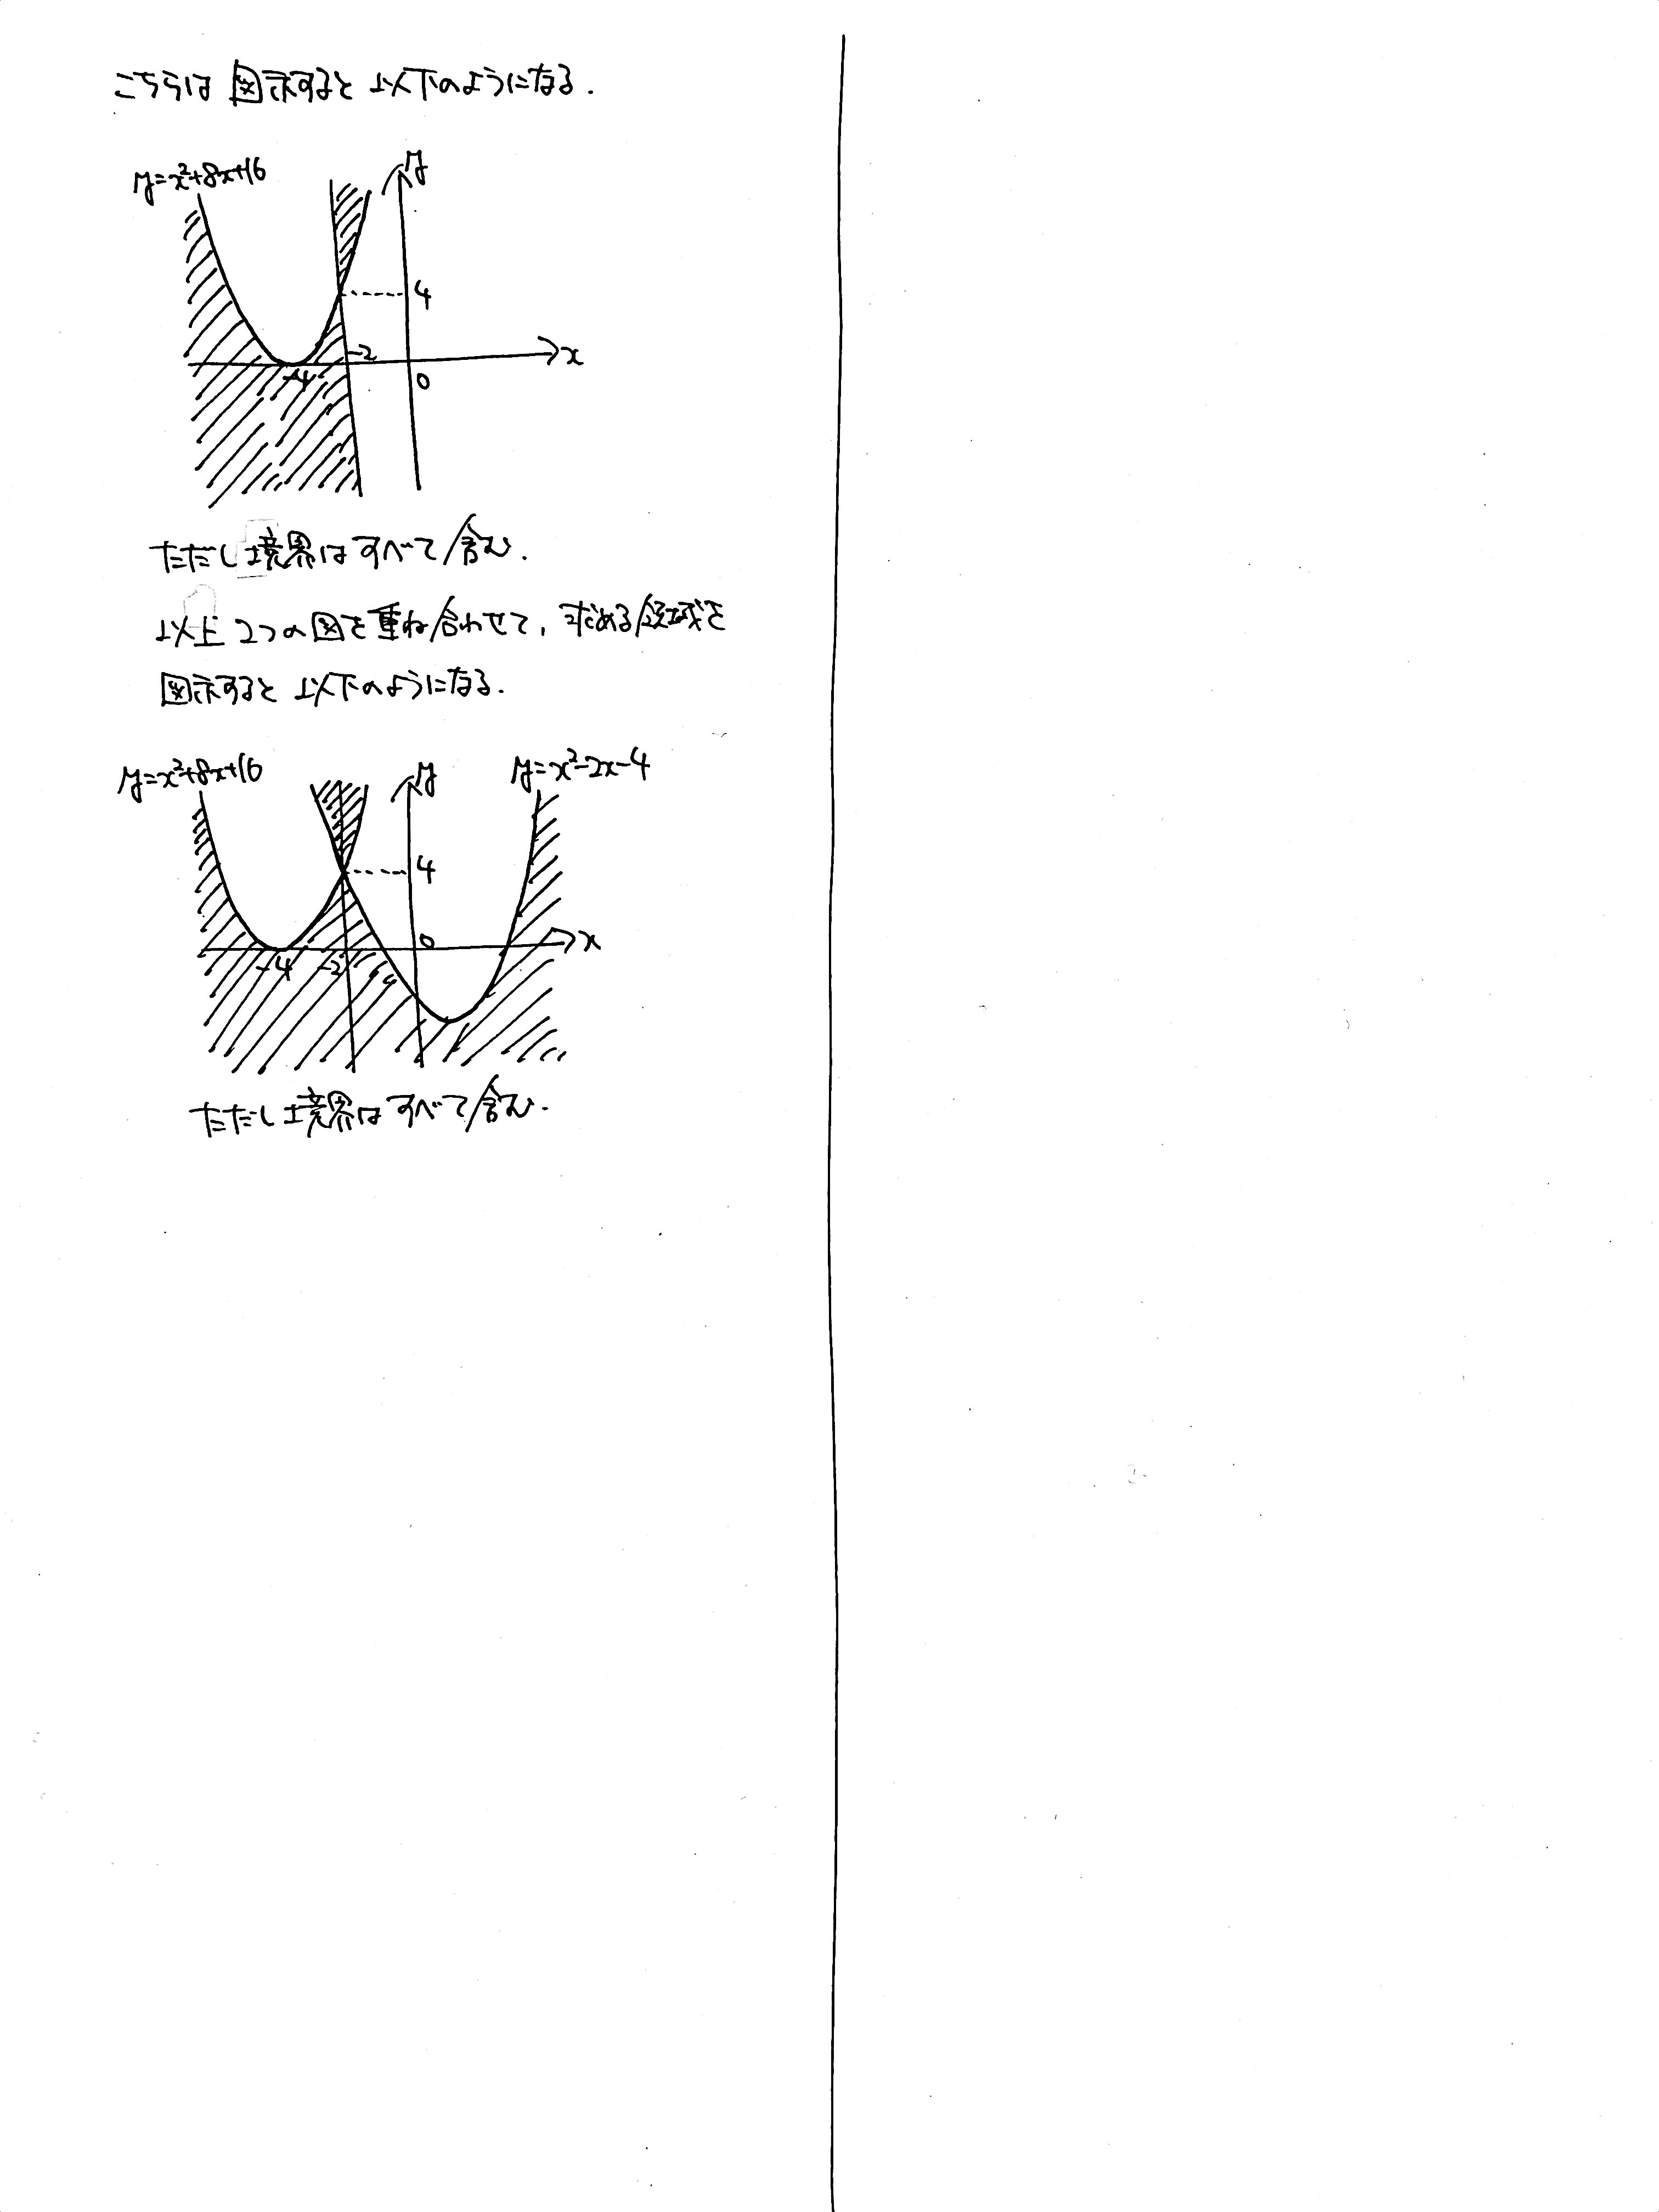 こちらは図示すると以下のようになる.
y=x²+8x+16
y
4
-2
x
-4
0
ただし境界はすべて含む.
以上2つの図を重ね合わせて,求める領域を
図示すると以下のようになる.
y=x²+8x+16
y
y=x²-2x-4
4
0
x
-4
-2
ただし境界はすべて含む.